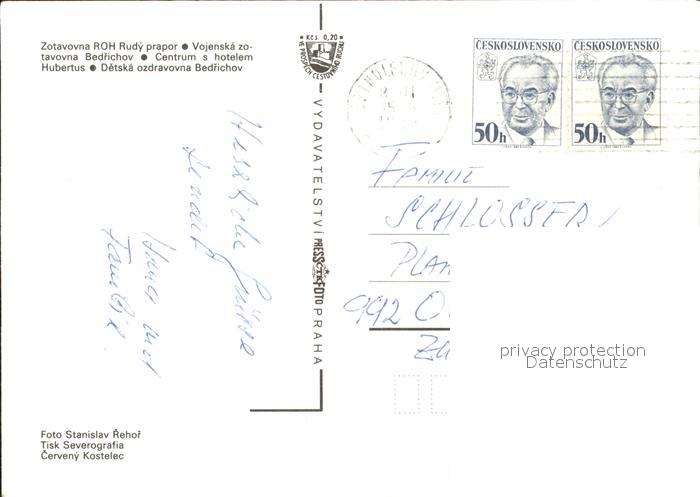 Zotavovna ROH Rudý prapor ● Vojenská zo-
tavovna Bedřichov ● Centrum s hotelem
Hubertus ● Dětská ozdravovna Bedřichov
Kčs 0,20
VE PROSPĚCH CESTOVNÍHO RUCHU
VYDAVATELSTVÍ PRESSFOTO PRAHA
ČESKOSLOVENSKO
50h
ČESKOSLOVENSKO
50h
Herzliche Grüsse
sendet
Hana mit
Familie
FAMILIE
SCHLOSSER
992 O
privacy protection
Datenschutz
Foto Stanislav Řehoř
Tisk Severografia
Červený Kostelec